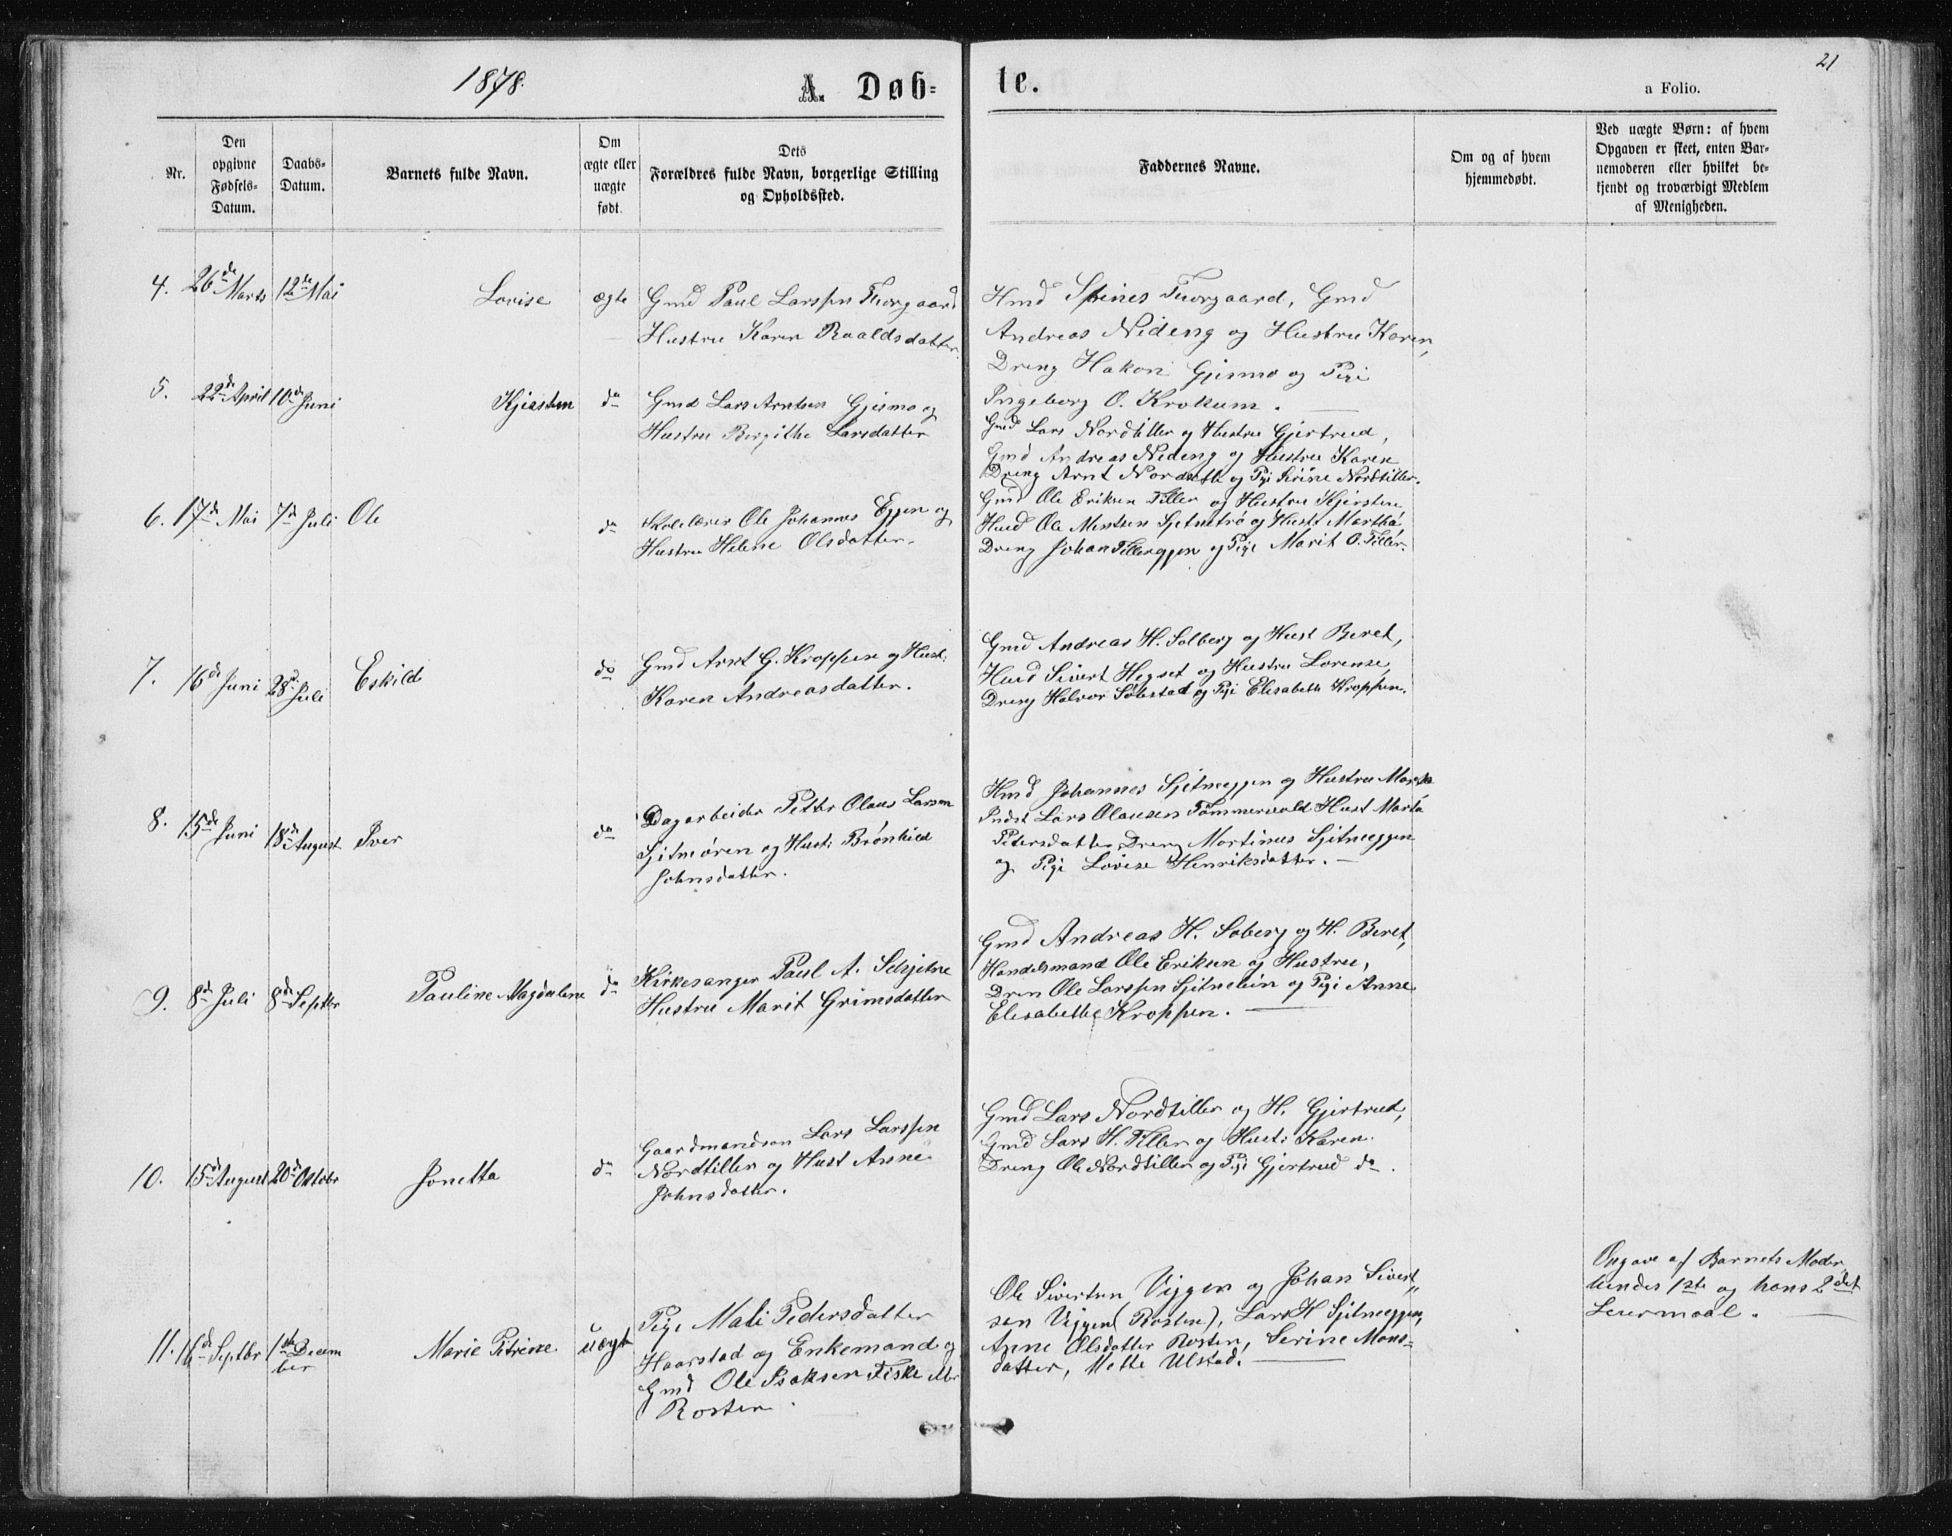 1878.
A. Døb=
te.
21
a Folio.
Nr.
Den
opgivne
Fødsels-
Datum.
Daabs-
Datum.
Barnets fulde Navn.
Om
ægte eller
uægte
født.
Dets
Forældres fulde Navn, borgerlige Stilling
og Opholdssted.
Faddernes Navne.
Om og af hvem
hjemmedøbt.
Ved uægte Børn: af hvem
Opgaven er skeet, enten Bar-
nemoderen eller hvilket be-
kjendt og troværdigt Medlem
af Menigheden.
4. 26de Marts 12te Mai Lovise ægte
Gmd Paul Larssen Thorgaard
Hustru Karen Roaldsdatter.
Hmd Thorgaard, Gmd
Andreas Nideng og Hustru Karen,
Dreng Hakon Gjismo og Pige
Ingeborg O. Krokum.
5. 22de April 10de Juni Kjersten do
Gmd Lars Arntsen Gjismo og
Hustru Bergithe Larsdatter
Gmd Lars Nordtiller og Hustru Gjertrud,
Gmd Andreas Nideng og Hustru Karen
Dreng Arnt og Pige Serine Nordtiller.
6. 17de Mai 7de Juli Ole do
Skolelærer Ole Johannes Eggen og
Hustru Helene Olsdatter.
Gmd Ole Eriksen Tiller og Hustru Kjersten,
Husd Ole Mentsen Sjetnetrø og Hust Martha
Dreng Johan Tillereggen og Pige Marit O. Tiller.
7. 16de Juni 28de Juli Eskild do
Gmd Arnt G. Kroppen og Hust:
Karen Andreasdatter.
Gmd Andreas H. Solberg og Hust Beret,
Husd Sivert Hegset og Hustru Lorense,
Dreng Halvor Solstad og Pige Elisabeth Kroppen.
8. 15de Juni 18de August Iver do
Dagarbeider Petter Olaus Larsen
Sjetnøren og Hust: Brønhild
Johnsdatter.
Hmd Johannes Sjetneeggen og Hustru Marth
Indst Lars Olausen Tømmervold Hust Marta
Petersdatter, Dreng Martinus Sjetneeggen
og Pige Lovise Henriksdatter.
9. 8de Juli 8de Septbr Pauline Magdalene do
Kirkesanger Paul A. Schjetne
Hustru Marit Grimsdatter
Gmd Andreas H. Soberg og H. Beret,
Handelsmand Ole Eriksen og Hustru,
Dren Ole Larssen Sjetnelein og Pige Anne
Elisabeth Kroppen.
10. 15de August 20de Oktobr Jonetta do
Gaardmandsøn Lars Larssen
Nordtiller og Hust Anne
Johnsdatter.
Gmd Lars Nordtiller og H. Gjertrud,
Gmd Lars H. Tiller og Hust: Karen.
Dreng Ole Nordtiller og Pige Gjertrud do.
11. 16de Septbr 1ste Decem
ber Marie Petrine uægt
Pige Mali Pedersdatter
Haarstad og Enkemand og
Gmd Ole Isaksen Fiske
Rosten.
Ole Sivertsen Viggen og Johan Sivert
sen Viggen (Rosten), Lars H Sjetneeggen,
Anne Olsdatter Rosten, Serine Mons-
datter, Mette Ulstad.
Opgave af Barnets Moder,
hendes 1ste og hans 2det
Leiermaal.